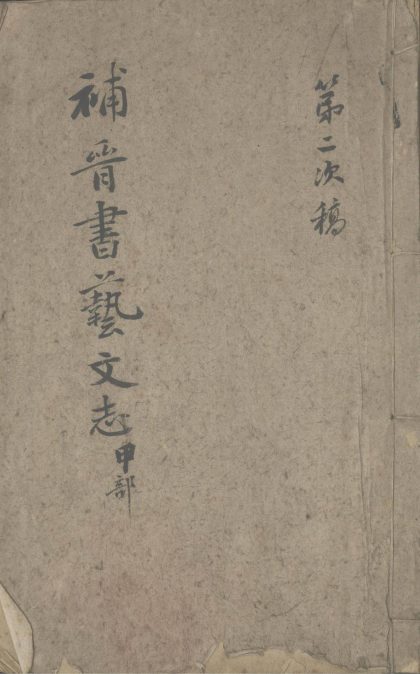 第二次稿
補晉書藝文志甲部